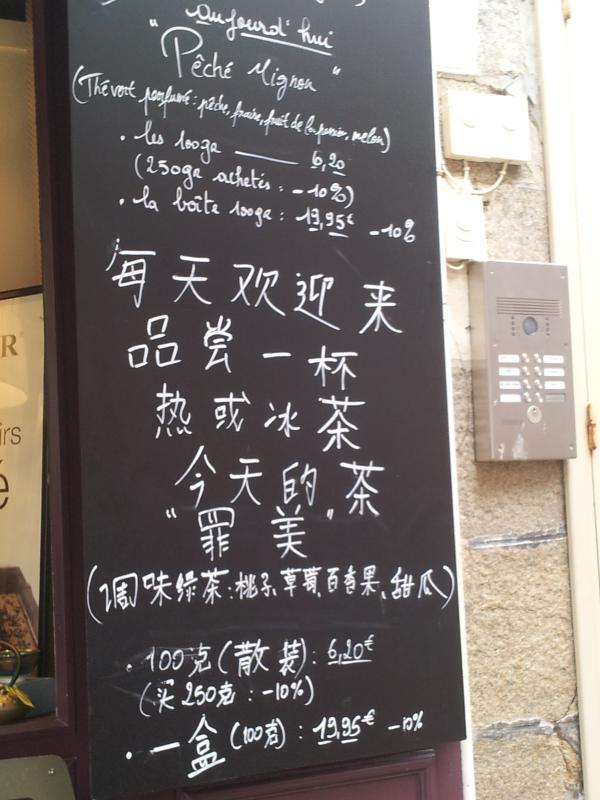 aujourd'hui
"Pêché Mignon"
(Thé vert parfumé : pêche, fraise, fruit de la passion, melon)
• les 100ga —— 6,20
(250ga achetés : -10%)
• la boîte 100ga : 19,95€ -10%
每天欢迎来
品尝一杯
热或冰茶
今天的茶
"罪美"
(调味绿茶:桃子、草莓、百香果、甜瓜)
• 100克(散装): 6,20€
(买250克: -10%)
• 一盒(100克): 19,95€ -10%
R
irs
é